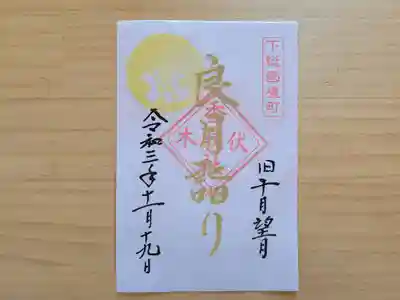 下総國境町
旧十月望月
良月詣り
伏木
令和三年十一月十九日